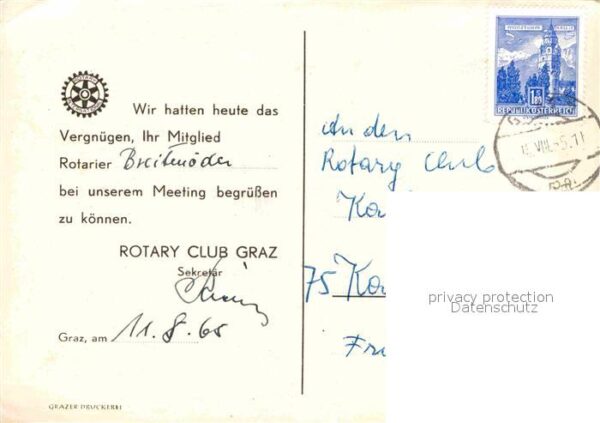 Wir hatten heute das
Vergnügen, Ihr Mitglied
Rotarier Breitenöder
bei unserem Meeting begrüßen
zu können.
ROTARY CLUB GRAZ
Sekretär
Graz, am 11. 8. 65
GRAZER DRUCKEREI
An den
Rotary Club
Ka
75 Ka
Fr
1.80
REPUBLIK ÖSTERREICH
privacy protection
Datenschutz